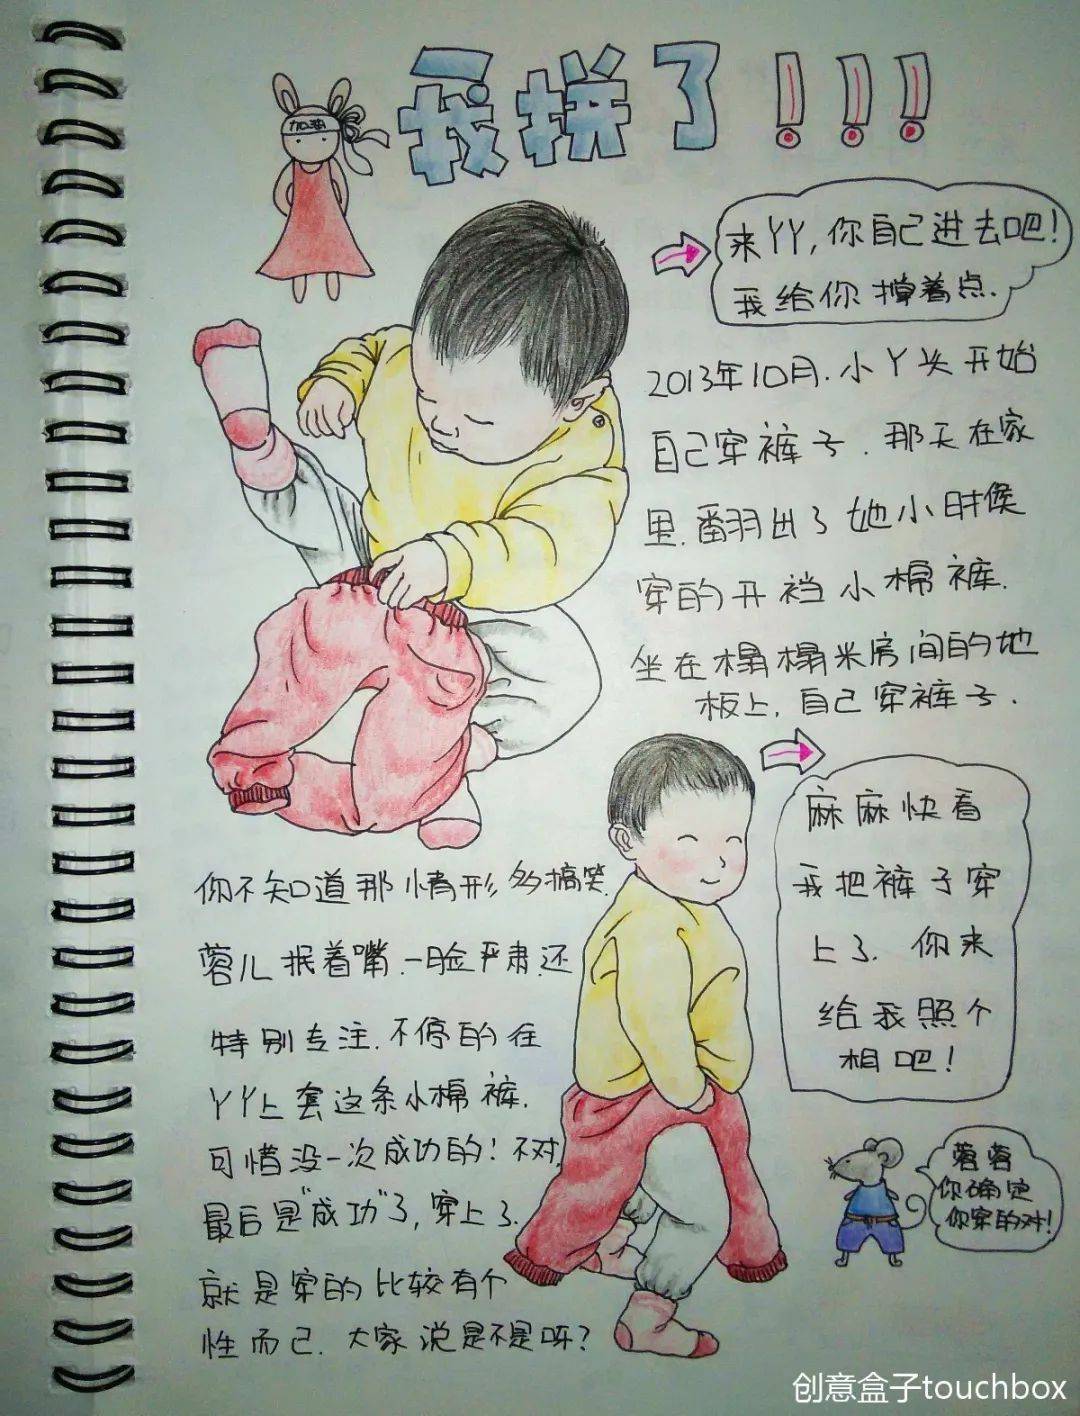 我拼了!!!
加油
来丫丫,你自己进去吧!
我给你撑着点.
2013年10月.小丫头开始
自己穿裤子.那天在家
里.翻出了她小时候
穿的开裆小棉裤.
坐在榻榻米房间的地
板上,自己穿裤子.
麻麻快看
我把裤子穿
上了.你来
给我照个
相吧!
你不知道那情形多搞笑.
蓉儿抿着嘴.一脸严肃.还
特别专注.不停的在
丫丫上套这条小棉裤.
可惜没一次成功的!不对,
最后是"成功"了,穿上了.
就是穿的比较有个
性而已.大家说是不是呀?
蓉蓉
你确定
你穿的对!
创意盒子touchbox